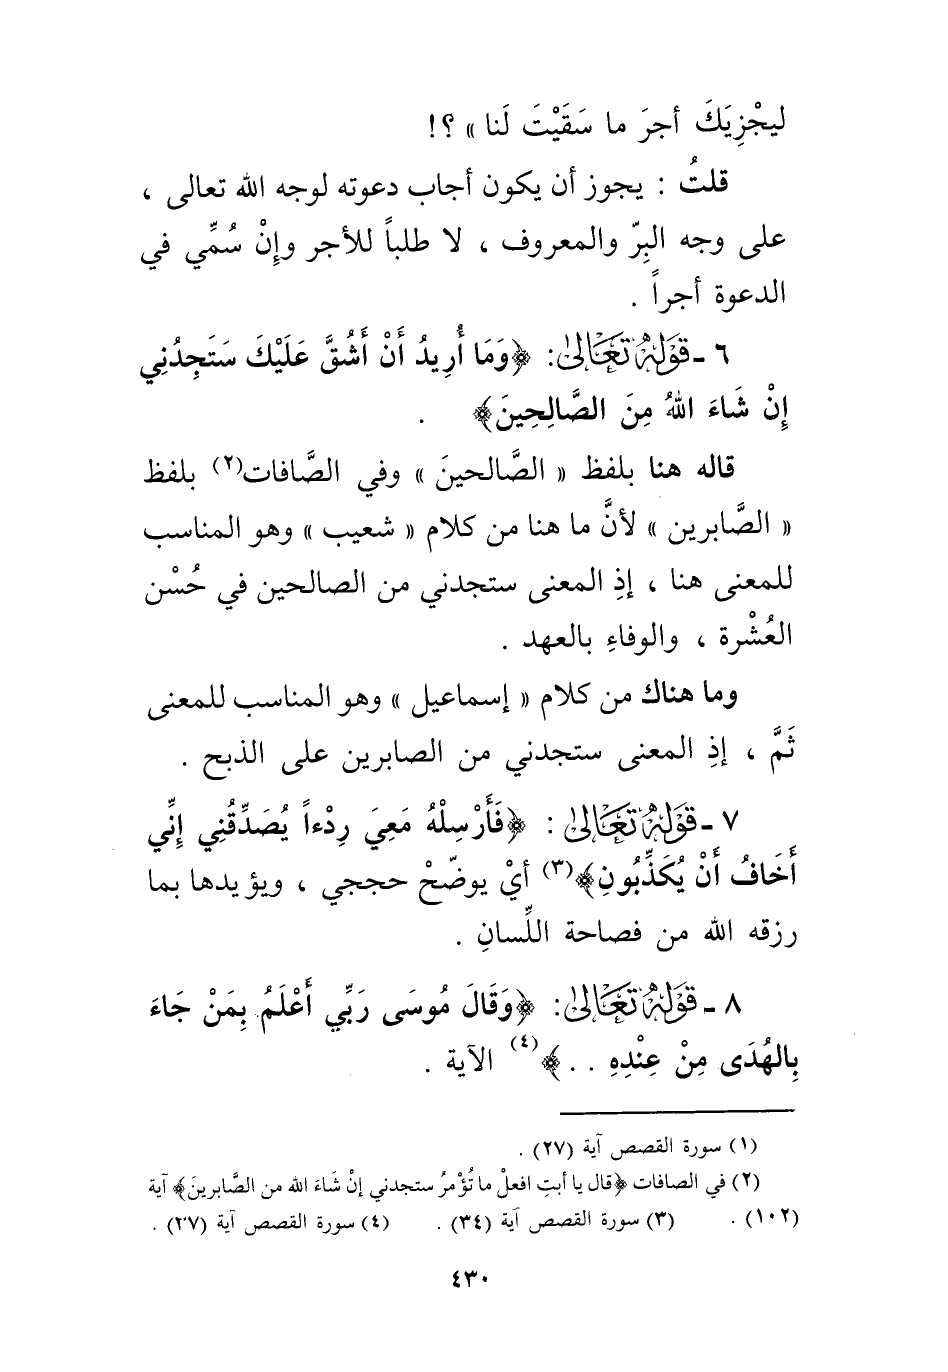 ليجْزِيَكَ أجرَ ما سَقَيْتَ لَنا » ؟ !
قلتُ : يجوز أن يكون أجاب دعوته لوجه الله تعالى ،
على وجه البِرّ والمعروف ، لا طلباً للأجر وإِنْ سُمِّي في
الدعوة أجراً .
٦ ـ قَوْلُهُ تَعَالَىٰ: ﴿وَمَا أُرِيدُ أَنْ أَشُقَّ عَلَيْكَ سَتَجِدُنِي
إِنْ شَاءَ اللهُ مِنَ الصَّالِحِينَ﴾ .
قاله هنا بلفظ « الصَّالحينَ » وفي الصَّافات(٢) بلفظ
« الصَّابرين » لأنَّ ما هنا من كلام « شعيب » وهو المناسب
للمعنى هنا ، إذِ المعنى ستجدني من الصالحين في حُسْن
العُشْرة ، والوفاءِ بالعهد .
وما هناك من كلام « إسماعيل » وهو المناسب للمعنى
ثَمَّ ، إذِ المعنى ستجدني من الصابرين على الذبح .
٧ ـ قَوْلُهُ تَعَالَىٰ : ﴿فَأَرْسِلْهُ مَعِيَ رِدْءاً يُصَدِّقُنِي إِنِّي
أَخَافُ أَنْ يُكَذِّبُونِ﴾(٣) أيْ يوضّحْ حججي ، ويؤيدها بما
رزقه الله من فصاحة اللِّسانِ .
٨ ـ قَوْلُهُ تَعَالَىٰ: ﴿وَقَالَ مُوسَى رَبِّي أَعْلَمُ بِمَنْ جَاءَ
بِالهُدَى مِنْ عِنْدِهِ . .﴾(٤) الآية .
(١) سورة القصص آية (٢٧) .
(٢) في الصافات ﴿قال يا أبتِ افعلْ ما تُؤْمرُ ستجدني إنْ شَاءَ الله من الصَّابرينَ﴾ آية
(١٠٢) . (٣) سورة القصص آية (٣٤) . (٤) سورة القصص آية (٣٧) .
٤٣٠